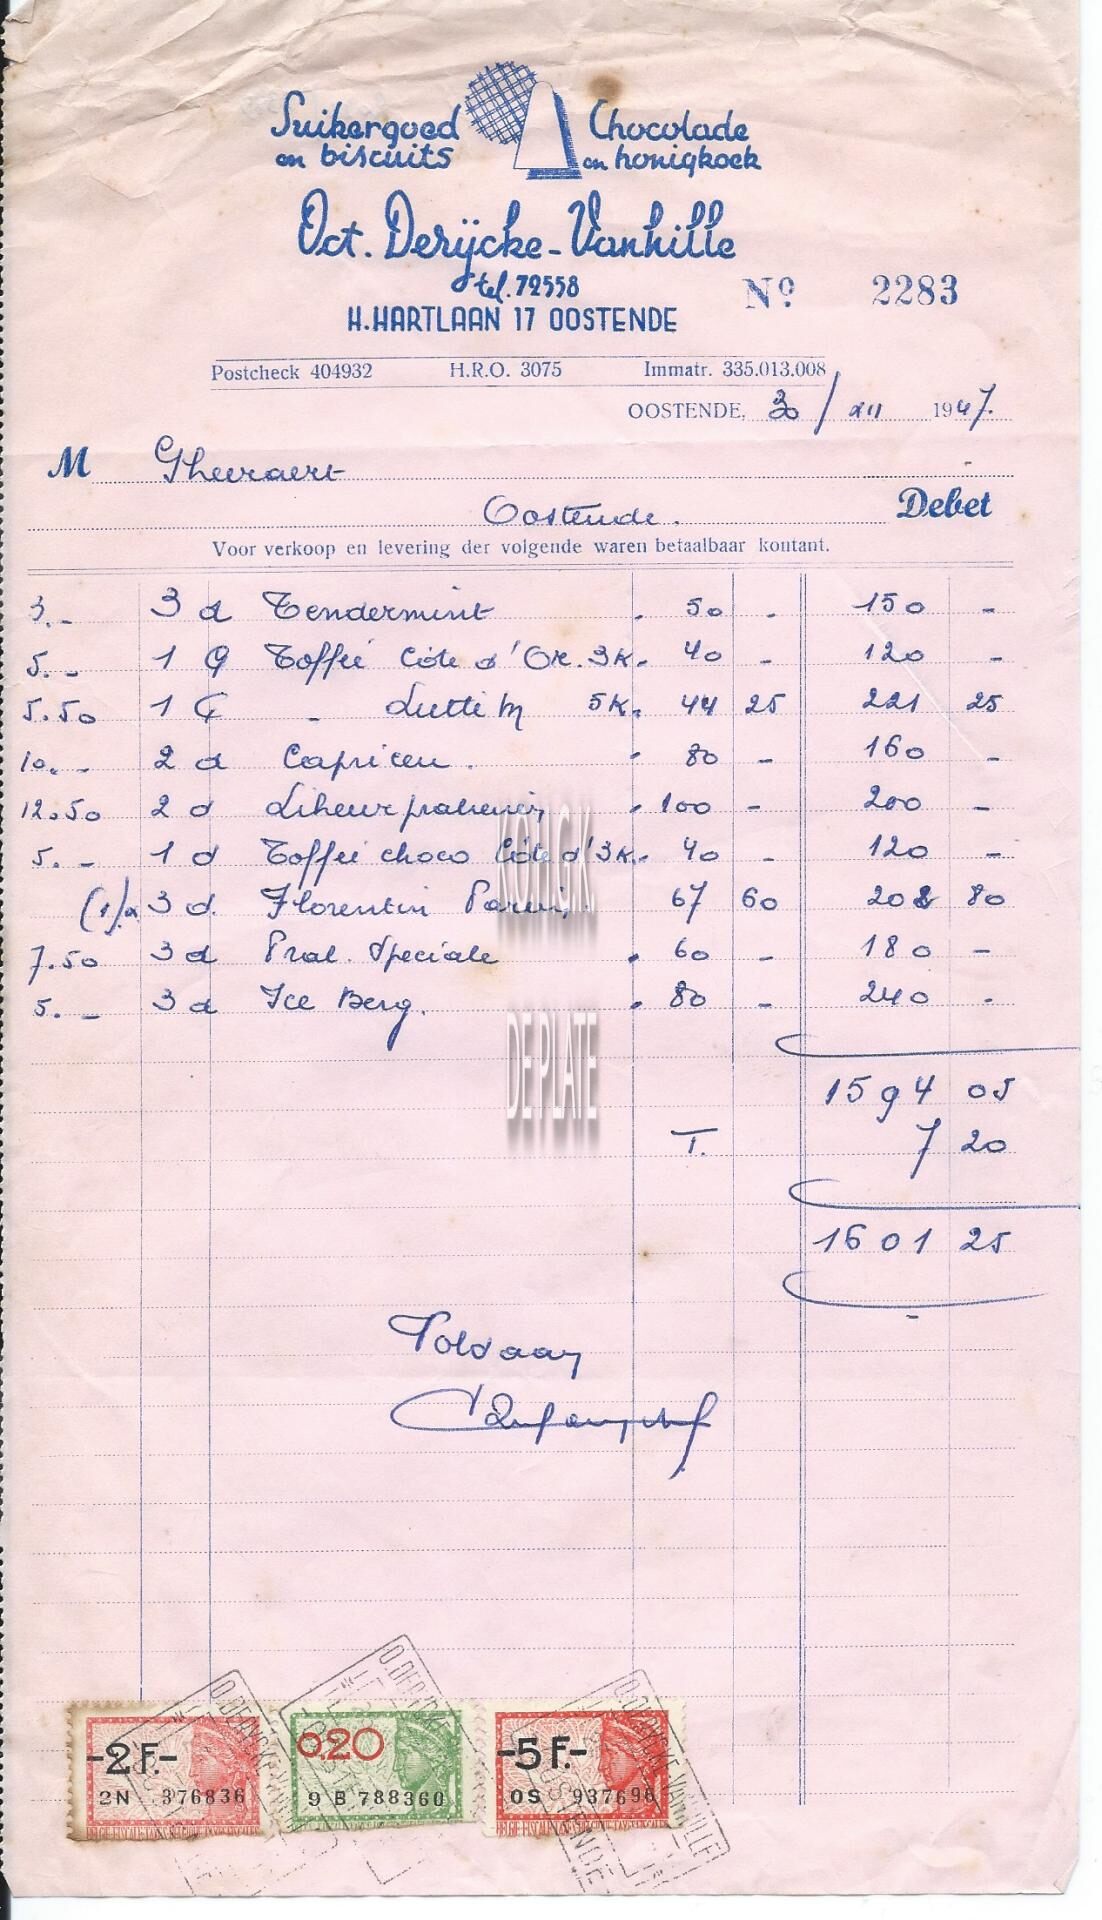 Suikergoed en biscuits
Chocolade en honigkoek
Oct. Derÿcke-Vanhille
tel. 72558
H. HARTLAAN 17 OOSTENDE
Nº 2283
Postcheck 404932 H.R.O. 3075 Immatr. 335.013.008
OOSTENDE, 30 / XII 1947.
M Gheeraert
Oostende. Debet
Voor verkoop en levering der volgende waren betaalbaar kontant.
3.- 3 d Tendermint . 50 - 150 -
5.- 1 Toffée Côte d'Or. 3K. 40 - 120 -
5.50 1 - Lutti 5K. 44 25 221 25
10.- 2 d . 80 - 160 -
12.50 2 d . 100 - 200 -
5.- 1 d Toffée choco Côte d' 3K. 40 - 120 -
3 d. Florentin 67 60 202 80
7.50 3 d Pral. Speciale . 60 - 180 -
5.- 3 d Ice Berg. . 80 - 240 -
1594 05
T. 7 20
1601 25
Voldaan
KON.G.K.
DE PLATE
-2 F.- 2N 376836
0.20 9 B 788360
-5 F.- OS 937696